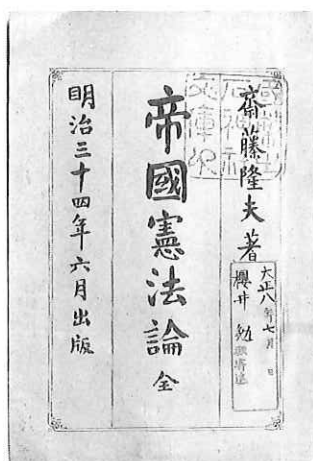 齋藤隆夫著
大正八年七月 日
櫻井勉
帝國憲法論 全
明治三十四年六月出版